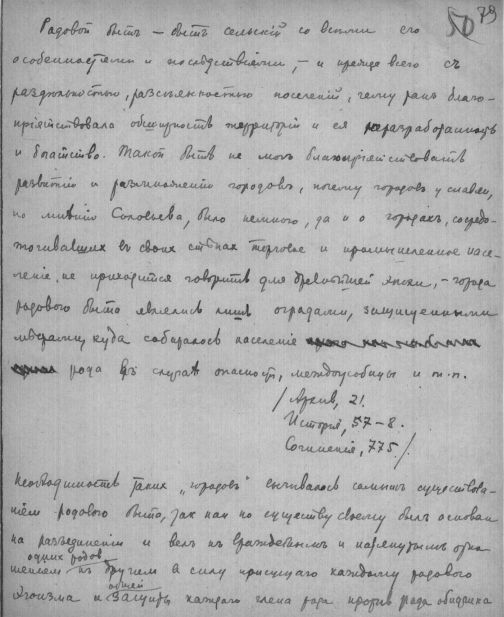 79
Родовой бытъ – бытъ сельскій со всѣми его
особенностями и послѣдствіями, – и прежде всего съ
раздѣльностью, разсѣянностью поселеній, чему рано благо-
пріятствовала обширность территоріи и ея неразработанность
и богатство. Такой бытъ не могъ благопріятствовать
развитію и размноженію городовъ, почему городовъ у славян,
по мнѣнію Соловьева, было немного, да и о городахъ, сосредо-
точивавших въ своих стѣнах торговое и промышленное насе-
леніе, не приходится говорить для древнѣйшей эпохи, – города
родового быта являлись лишь оградами, защищенными
мѣстами, куда собиралось населеніе
рода въ случаѣ опасности, междоусобицы и т.п.
/Архив, 21.
Исторія, 57–8.
Сочиненія, 775/.
Необходимость таких „городовъ" вызывалось самымъ существова-
ніем родового быта, так как по существу своему былъ основан
на разъединеніи и велъ къ враждебнымъ и натянутымъ отно
шеніям одних родов къ другим в силу присущаго каждому родового
эгоизма и общей защиты каждаго члена рода против рода обидчика